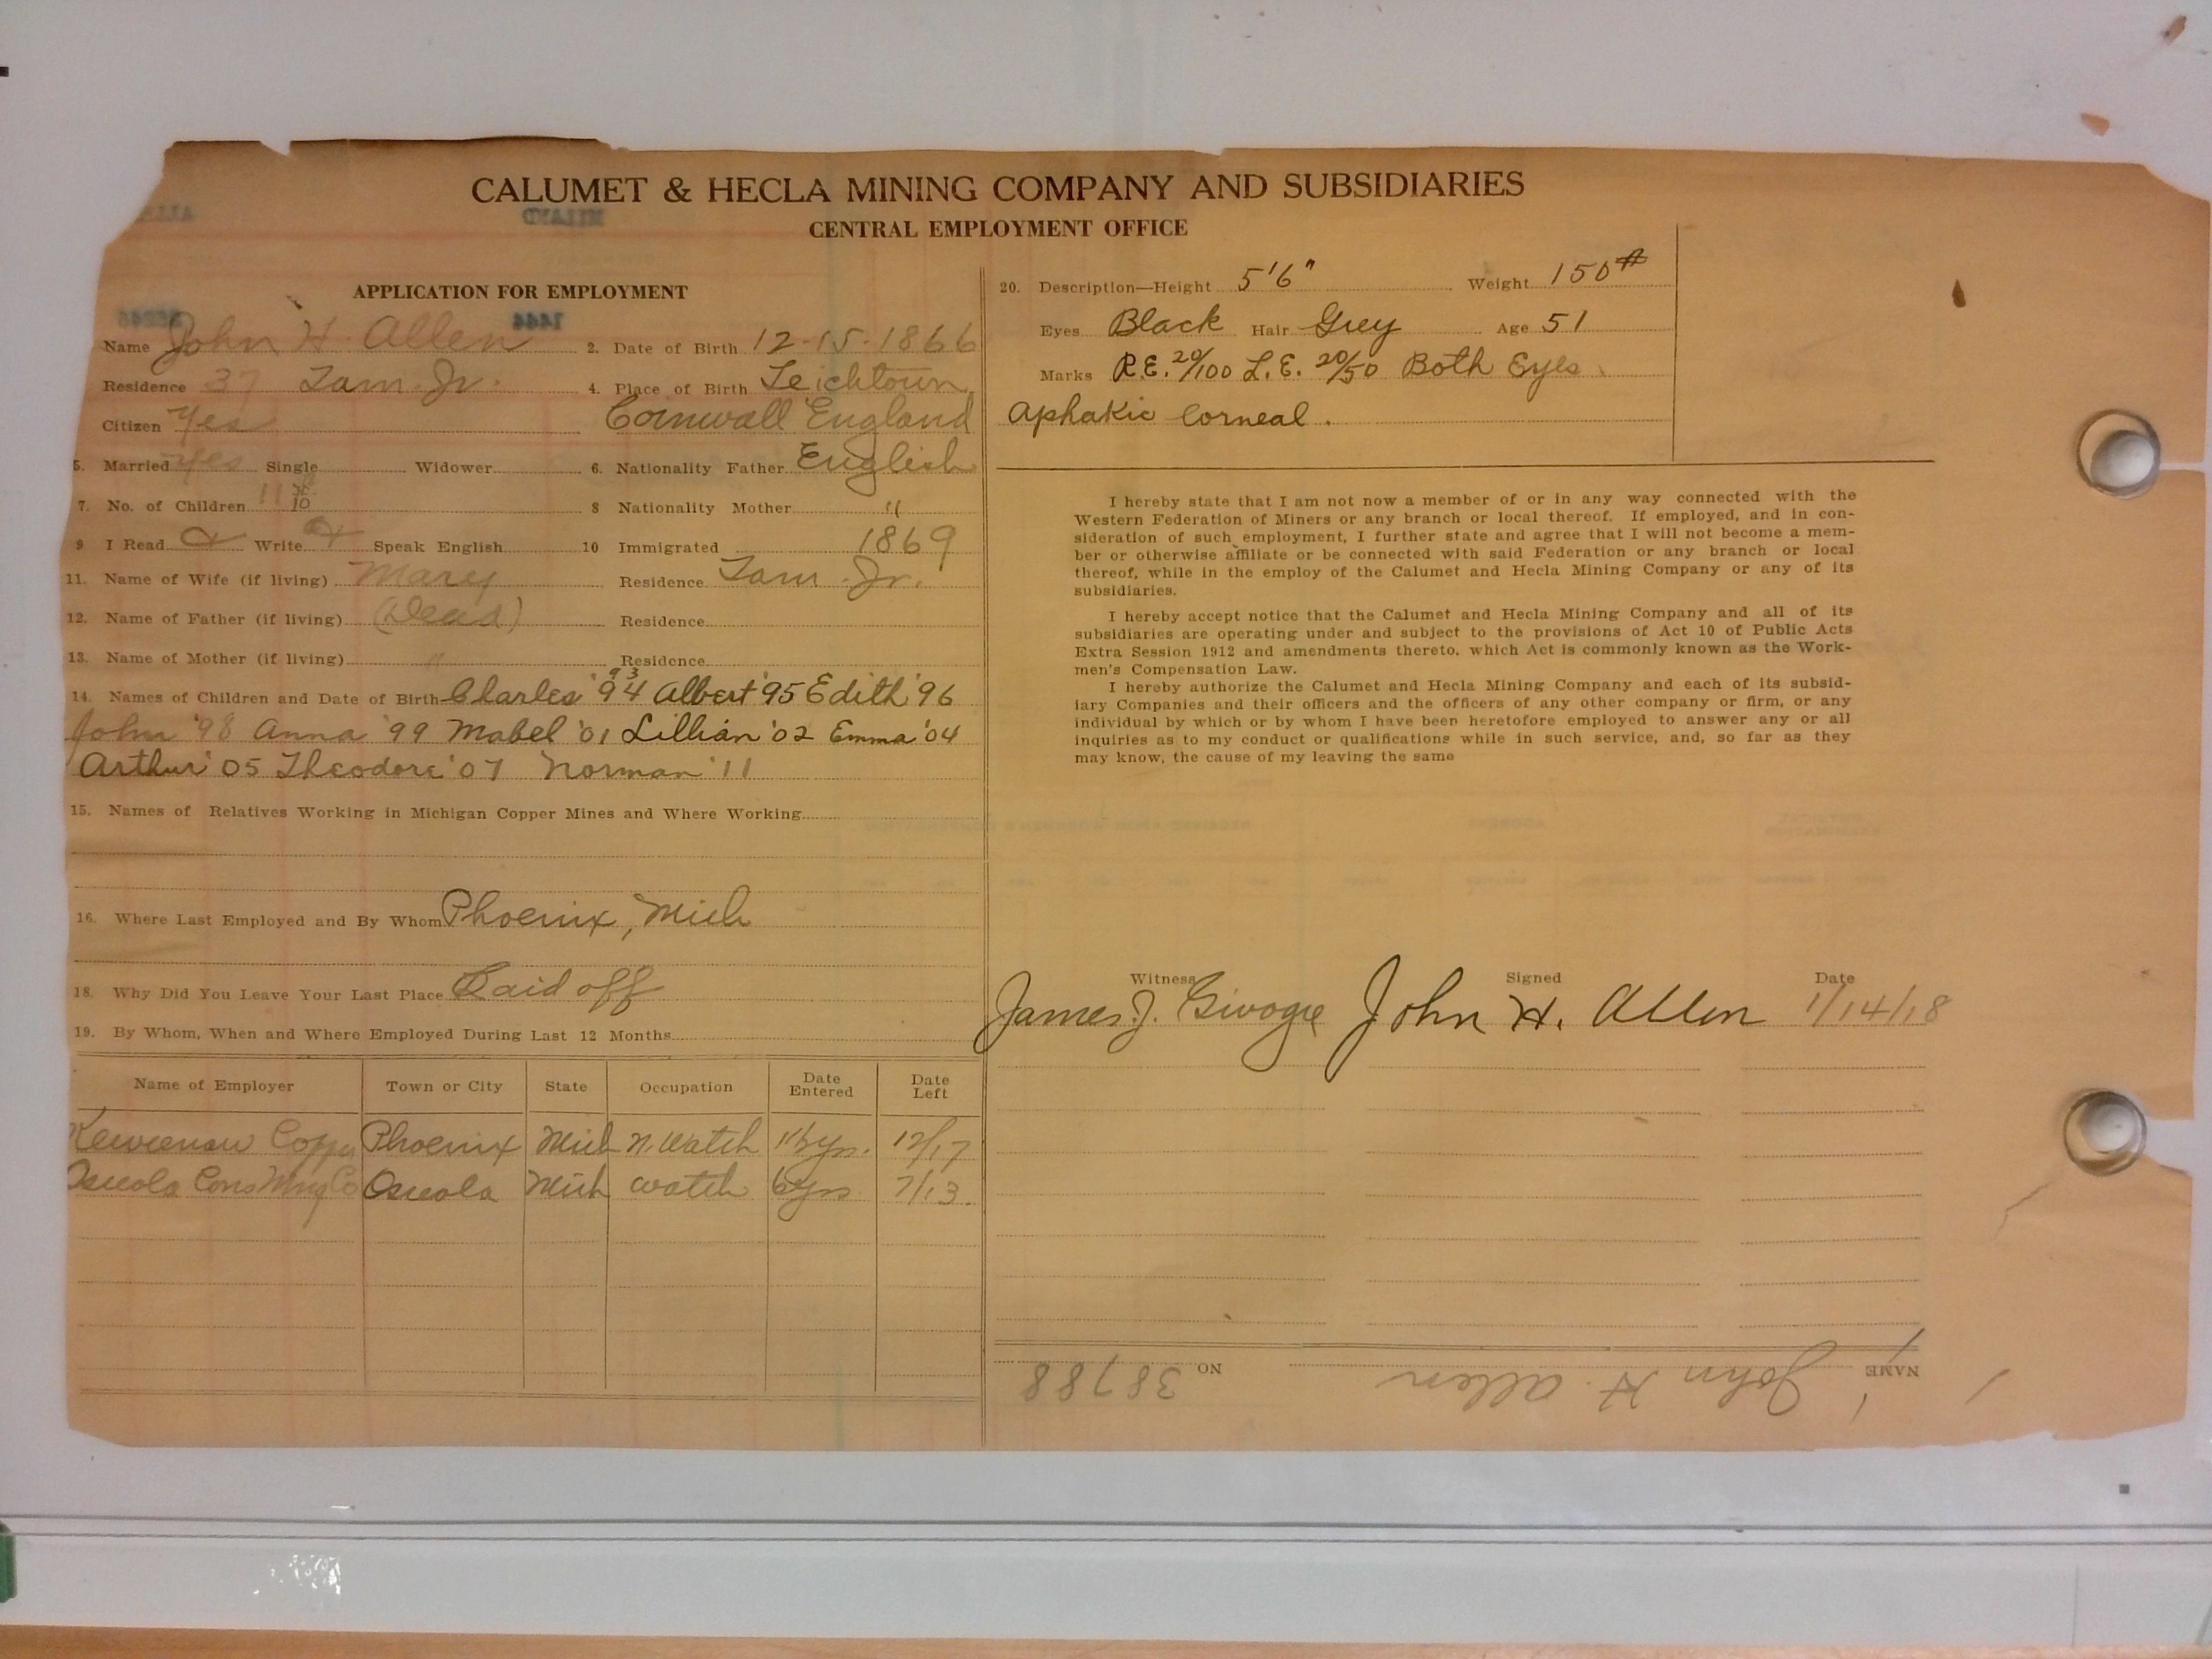 CALUMET & HECLA MINING COMPANY AND SUBSIDIARIES
CENTRAL EMPLOYMENT OFFICE
APPLICATION FOR EMPLOYMENT
Name John H. Allen 2. Date of Birth 12-15-1866
Residence 37 Tam. Jr. 4. Place of Birth Leichtown
Citizen Yes Cornwall England
5. Married Yes Single Widower 6. Nationality Father English
7. No. of Children 11 10 8 Nationality Mother "
9 I Read Write Speak English 10 Immigrated 1869
11. Name of Wife (if living) Mary Residence Tam. Jr.
12. Name of Father (if living) (Dead) Residence
13. Name of Mother (if living) " Residence
14. Names of Children and Date of Birth Charles '94 93 Albert '95 Edith '96
John '98 Anna '99 Mabel '01 Lillian '02 Emma '04
Arthur '05 Theodore '07 Norman '11
15. Names of Relatives Working in Michigan Copper Mines and Where Working
16. Where Last Employed and By Whom Phoenix, Mich
18. Why Did You Leave Your Last Place Laid off
19. By Whom, When and Where Employed During Last 12 Months
Name of Employer Town or City State Occupation Date Entered Date Left
Keweenaw Copper Phoenix Mich N. Watch yrs. 12/17
Osceola Cons Mng Co Osceola Mich watch 6 yrs 7/13
20. Description—Height 5'6" Weight 150#
Eyes Black Hair Grey Age 51
Marks R.E. 20/100 L.E. 20/50 Both Eyes
aphakic corneal.
I hereby state that I am not now a member of or in any way connected with the
Western Federation of Miners or any branch or local thereof. If employed, and in con-
sideration of such employment, I further state and agree that I will not become a mem-
ber or otherwise affiliate or be connected with said Federation or any branch or local
thereof, while in the employ of the Calumet and Hecla Mining Company or any of its
subsidiaries.
I hereby accept notice that the Calumet and Hecla Mining Company and all of its
subsidiaries are operating under and subject to the provisions of Act 10 of Public Acts
Extra Session 1912 and amendments thereto, which Act is commonly known as the Work-
men's Compensation Law.
I hereby authorize the Calumet and Hecla Mining Company and each of its subsid-
iary Companies and their officers and the officers of any other company or firm, or any
individual by which or by whom I have been heretofore employed to answer any or all
inquiries as to my conduct or qualifications while in such service, and, so far as they
may know, the cause of my leaving the same
Witness Signed Date
James J. John H. Allen 1/14/18
NAME John H. Allen NO 38788